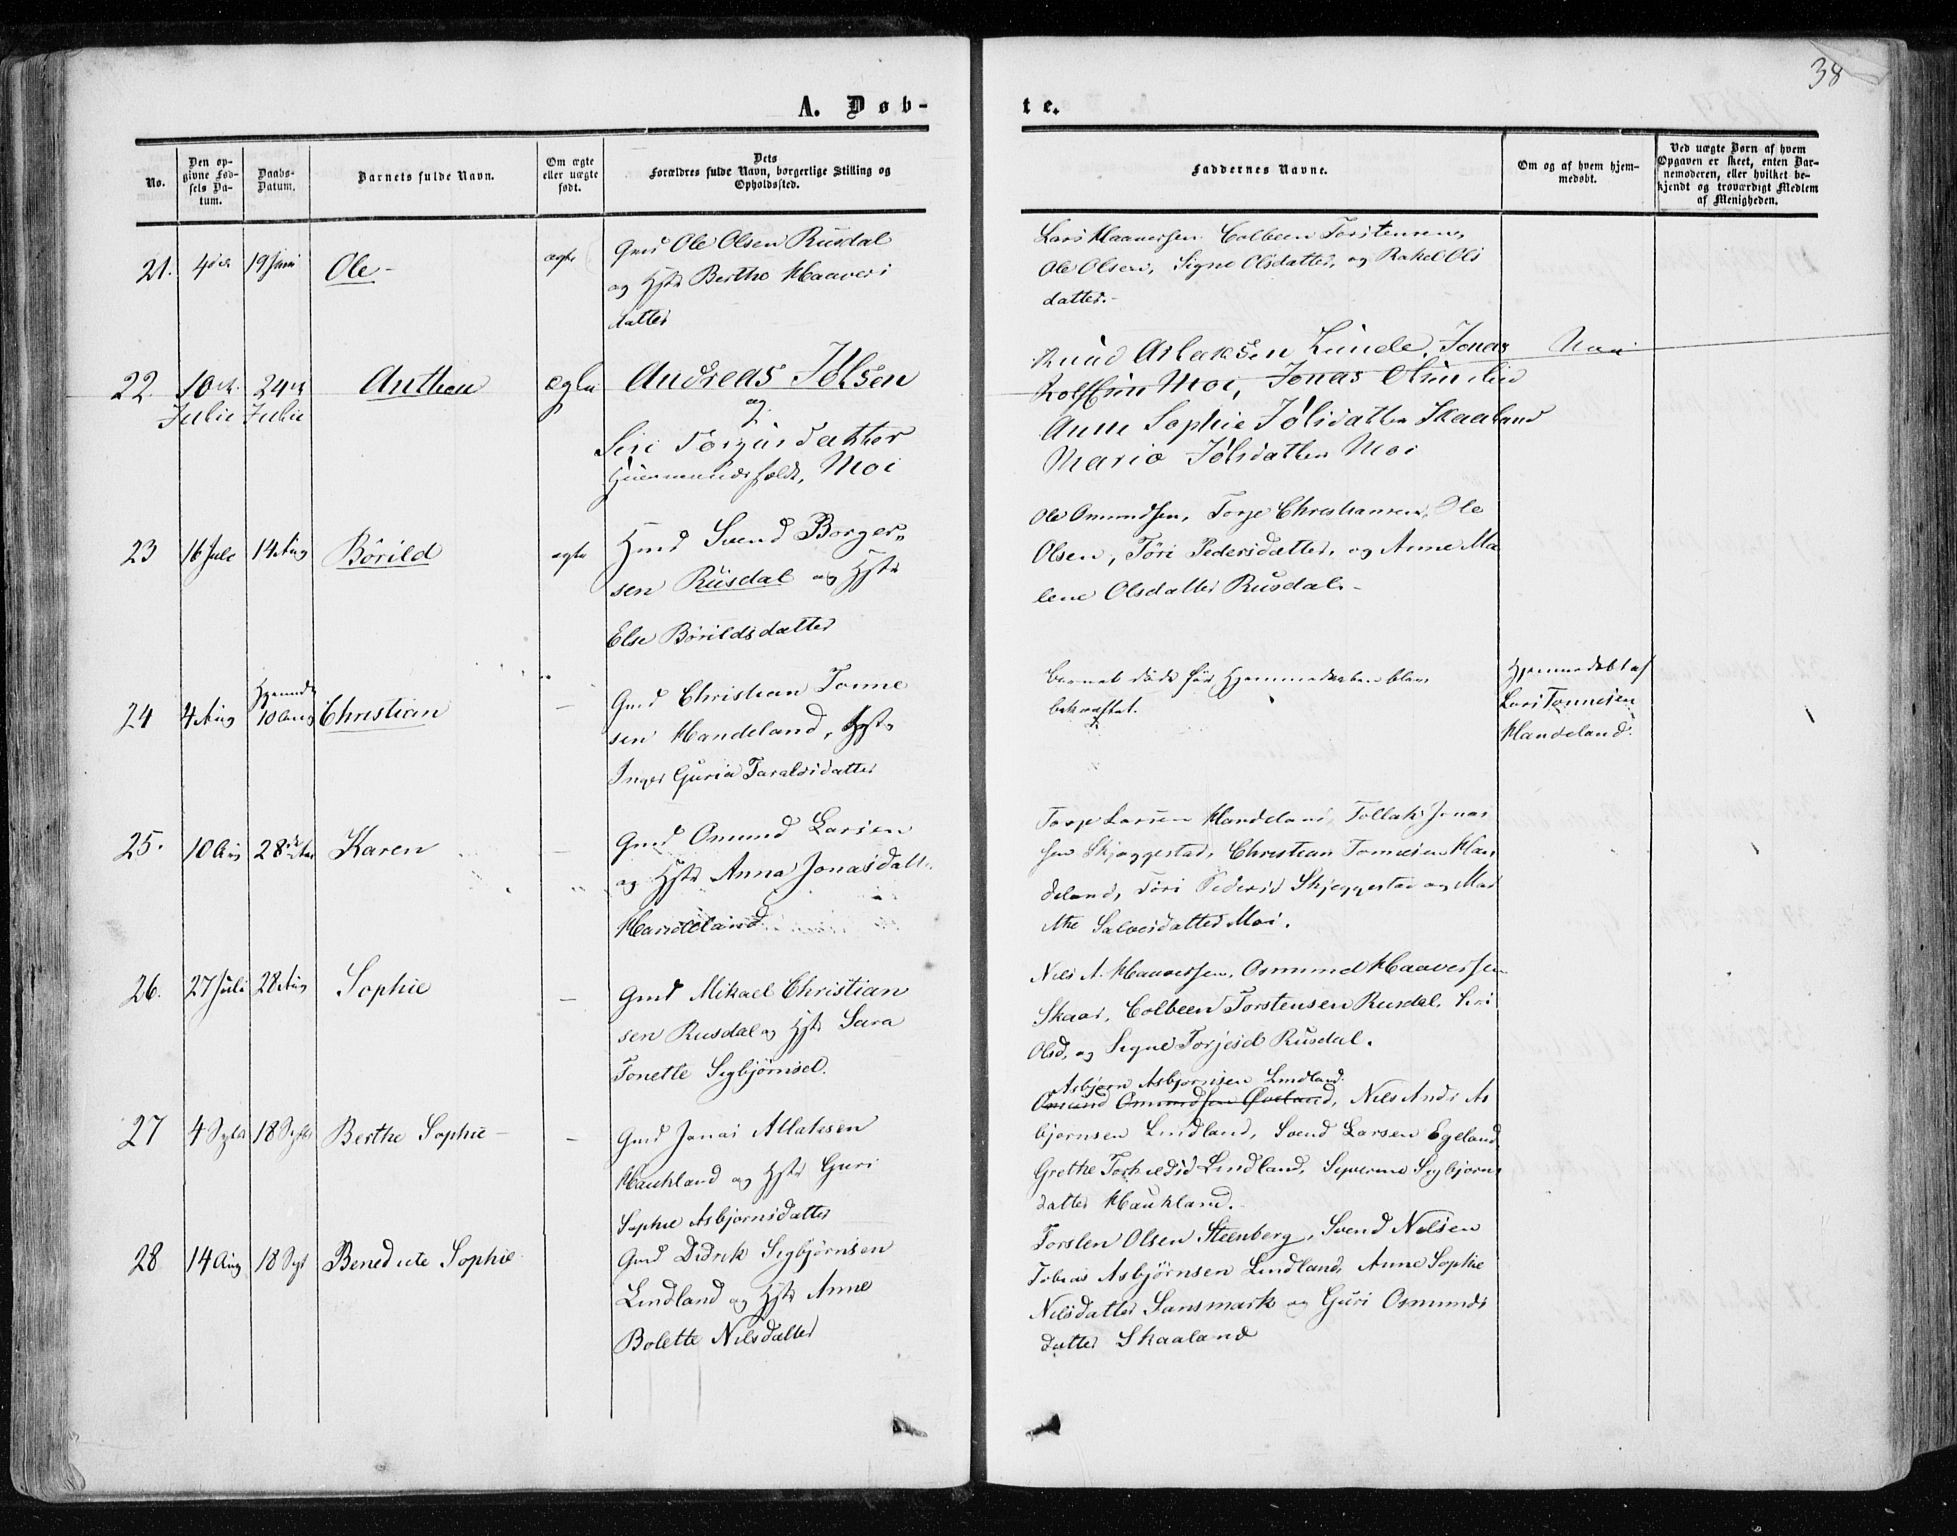 38
A. Døb-
te.
No.
Den op-
givne Fød-
sels Da-
tum.
Daabs-
Datum.
Barnets fulde Navn.
Om ægte
eller uægte
født.
Dets
Forældres fulde Navn, borgerlige Stilling og
Opholdssted.
Faddernes Navne.
Om og af hvem hjem-
medøbt.
Ved uægte Børn af hvem
Opgaven er skeet, enten Bar-
nemoderen, eller hvilket be-
kjendt og troværdigt Medlem
af Menigheden.
21. 19 Juni Ole - ægte
Gmd Ole Olsen Rusdal
og Hstr Berthe Haavers
datter
Lars Haaversen Colbeen Torstensen,
Ole Olsen, Signe Olsdatter, og Rakel Ols
datter. -
22. 10de 24de Anthon ægte
Julie Julie
Andreas Jølsen
og
Siri Torgursdatter
Huusmandsfolk, Moi
Knud Aslaksen Lunde, Jonas
Moi, Jonas
Anne Sophie Jølsdatter Skaaland
Marie Jølsdatter Moi
23 16 Jule 14 Aug Børild ægte
Hmd Svend Borger-
sen Rusdal og Hstr
Else Børildsdatter
Ole Omundsen, Torje Christiansen, Ole
Olsen, Tøri Pedersdatter, og Anne Ma
lene Olsdatter Rusdal. -
24 4 Aug Hjemmed
10 Aug Christian -
Gmd Christian Tønne
sen Handeland, Hstr
Inger Guria Taraldsdatter
Barnet døde før Hjemmedaaben blev
bekræftet.
Hjemmedøbt af
Lars Tønnesen
Handeland.
25. 10 Aug 28de Aug Karen -
Gmd Omund Larsen
og Hstr Anna Jonasdatt.
Handeland
Torje Larsen Handeland, Tollak Jonas
sen Skjeggestad, Christian Tønnesen Han
deland, Tøri Pedersd Skjeggestad og Mar
the Salvesdatter Moi.
26. 27 Juli 28 Aug Sophie -
Gmd Mikael Christian
sen Rusdal og Hstr Sara
Tonette Sigbjørnsd.
Nils A. Haaversen, Osmund Haaversen
Skaar, Colbeen Torstensen Rusdal, Siri
Olsd, og Signe Torjesd Rusdal.
27 4 Septbr 18 Septbr Berthe Sophie - -
Gmd Jonas Atlaksen
Haukland og Hstr Guri
Sophie Asbjørnsdatter
Asbjørn Asbjørnsen Lindland
Omund Omundsen Øveland, Nils Ands As
bjørnsen Lindland, Svend Larsen Egeland
Grethe Torkildsd Lindland, Severine Sigbjørns
datter Haukland.
28 14 Aug 18 Sept Benedicte Sophie
Gmd Didrik Sigbjørnsen
Lindland og Hstr Anne
Bolette Nilsdatter
Torsten Olsen Steenberg, Svend Nilsen
Tobias Asbjørnsen Lindland, Anne Sophie
Nilsdatter Sansmark og Guri Osmunds
datter Skaaland